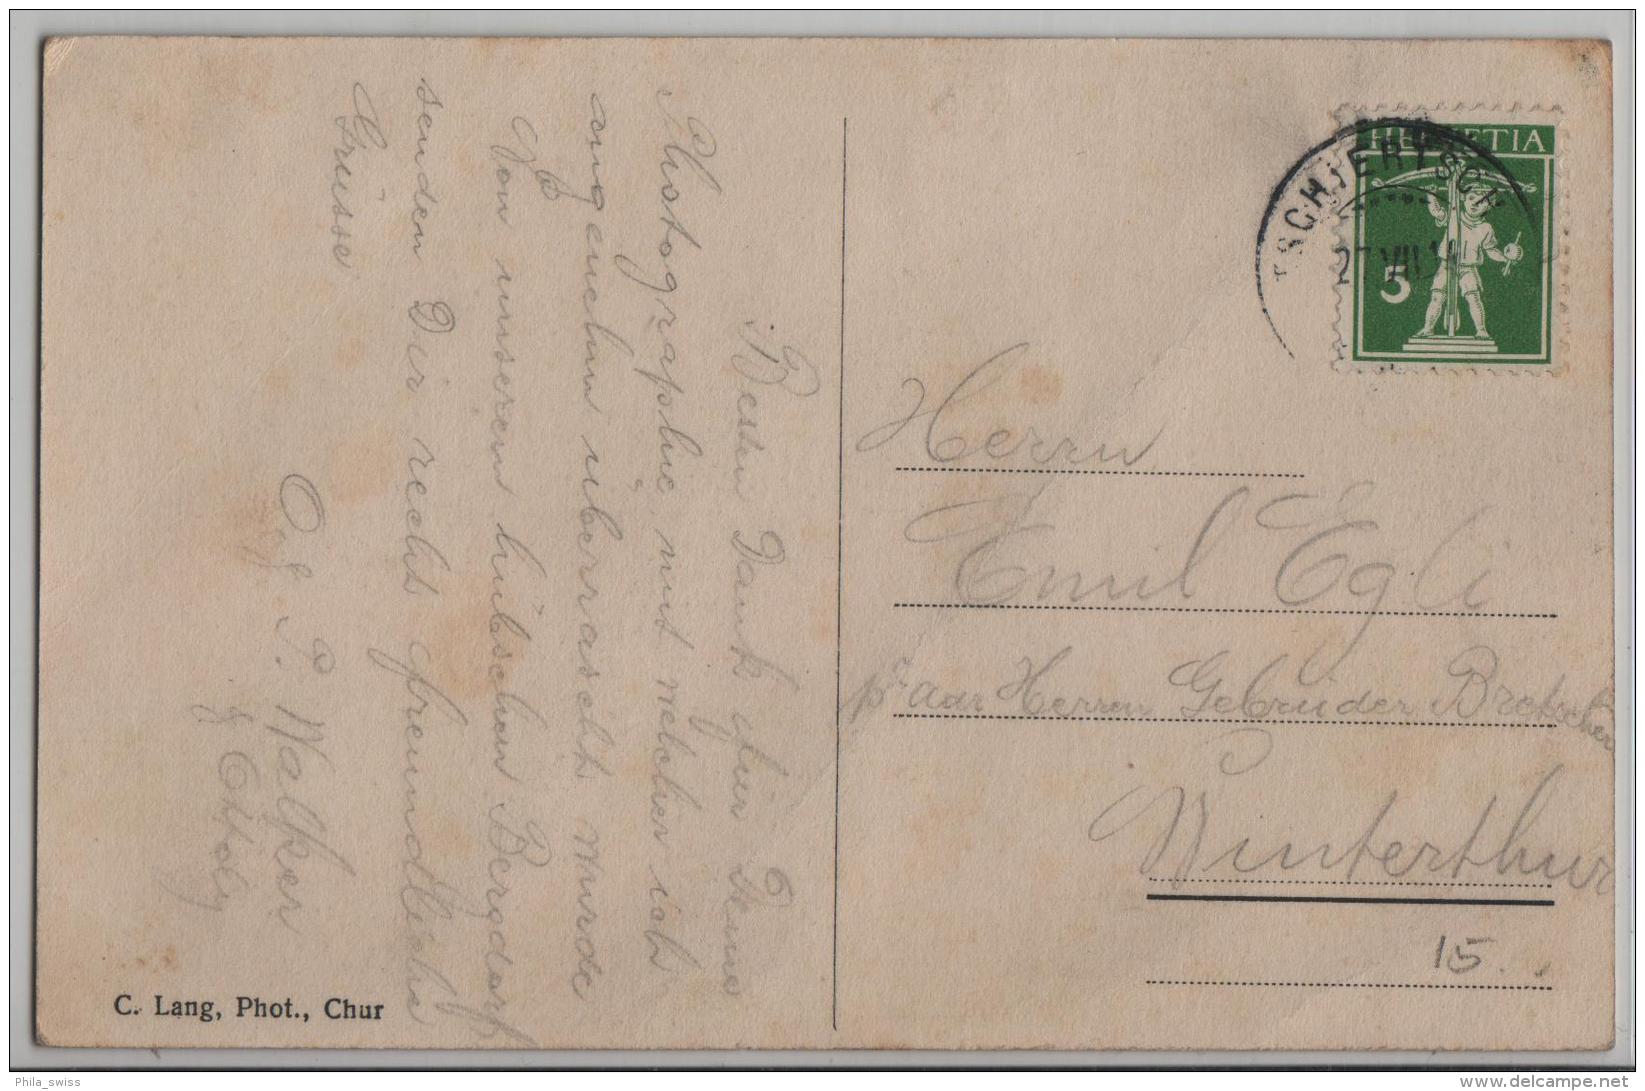 Besten Dank für Deine
Photographie, mit welcher ich
angenehm überrascht wurde
Von unserem hübschen Bergdorf
senden Dir recht freundliche
Grüsse
P. Walker
C. Lang, Phot., Chur
HELVETIA
5
TSCHIERTSCH
27 VIII
Herrn
Emil Egli
Herren Gebrüder Bretscher
Winterthur
15.
Phila_swiss
www.delcampe.net